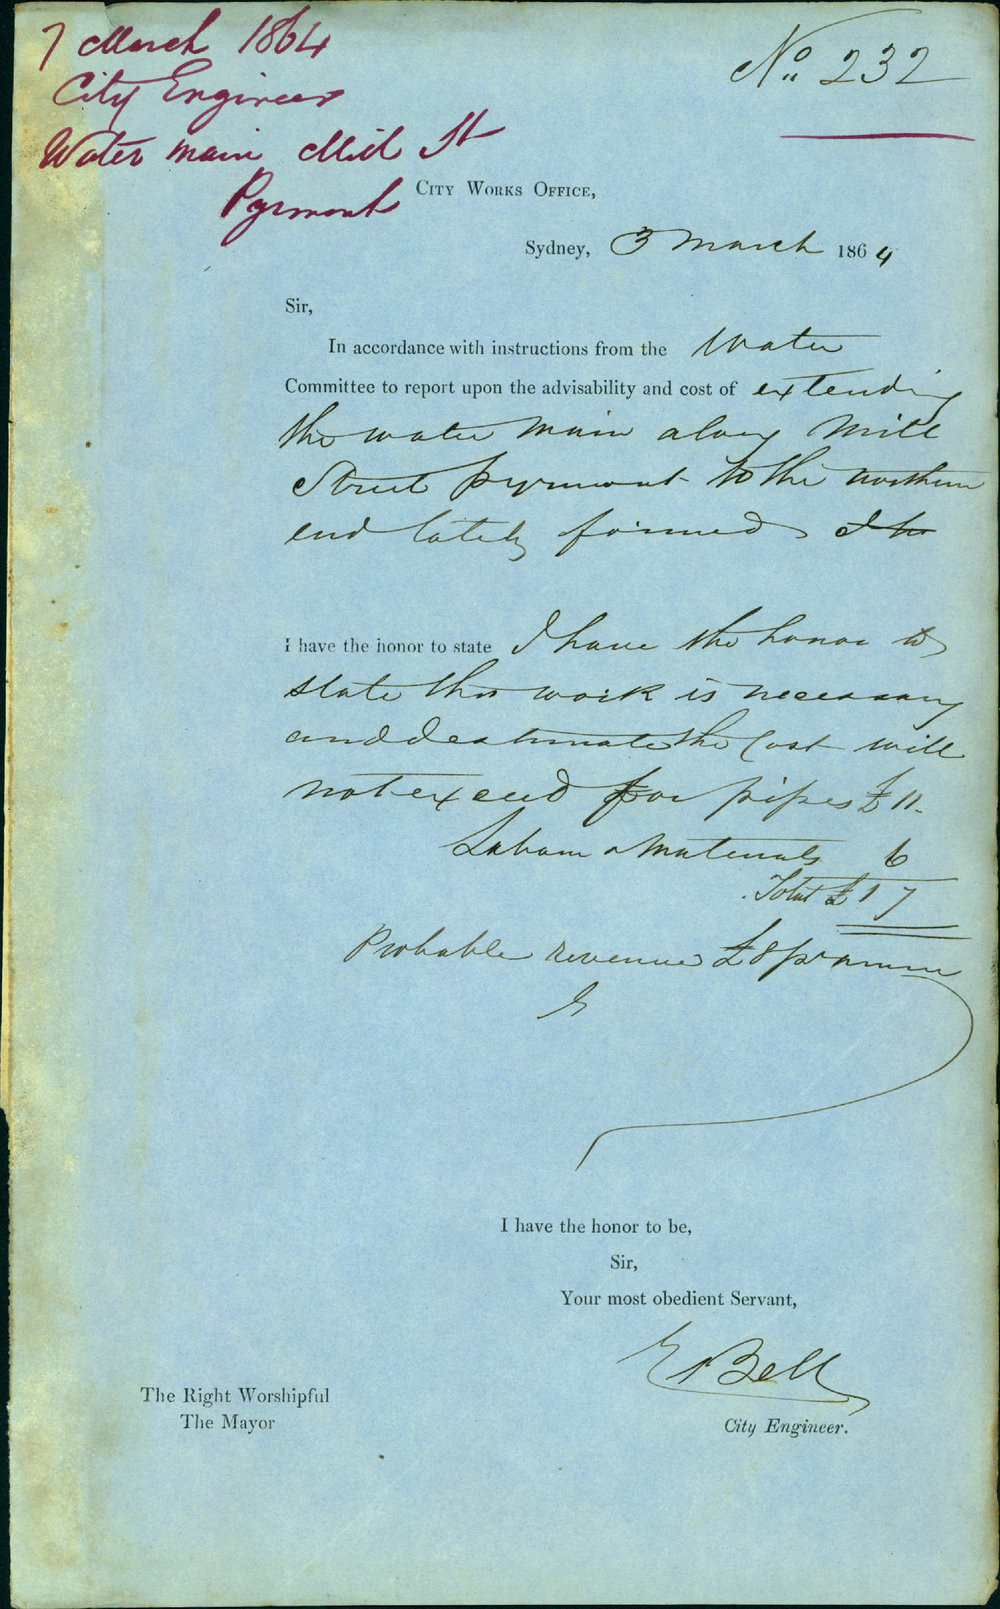 7 March 1864
City Engineer
Water main Mill St
Pyrmont
No. 232
City Works Office,
Sydney, 3 March 1864
Sir,
In accordance with instructions from the Water
Committee to report upon the advisability and cost of extending
the water main along Mill
Street Pyrmont to the northern
end lately formed I ha
I have the honor to state I have the honor to
state this work is necessary
and I estimate the cost will
not exceed for pipes £11.
Labour & Materials 6
Total £17
Probable revenue £8 pr annum
I have the honor to be,
Sir,
Your most obedient Servant,
E Bell
City Engineer.
The Right Worshipful
The Mayor